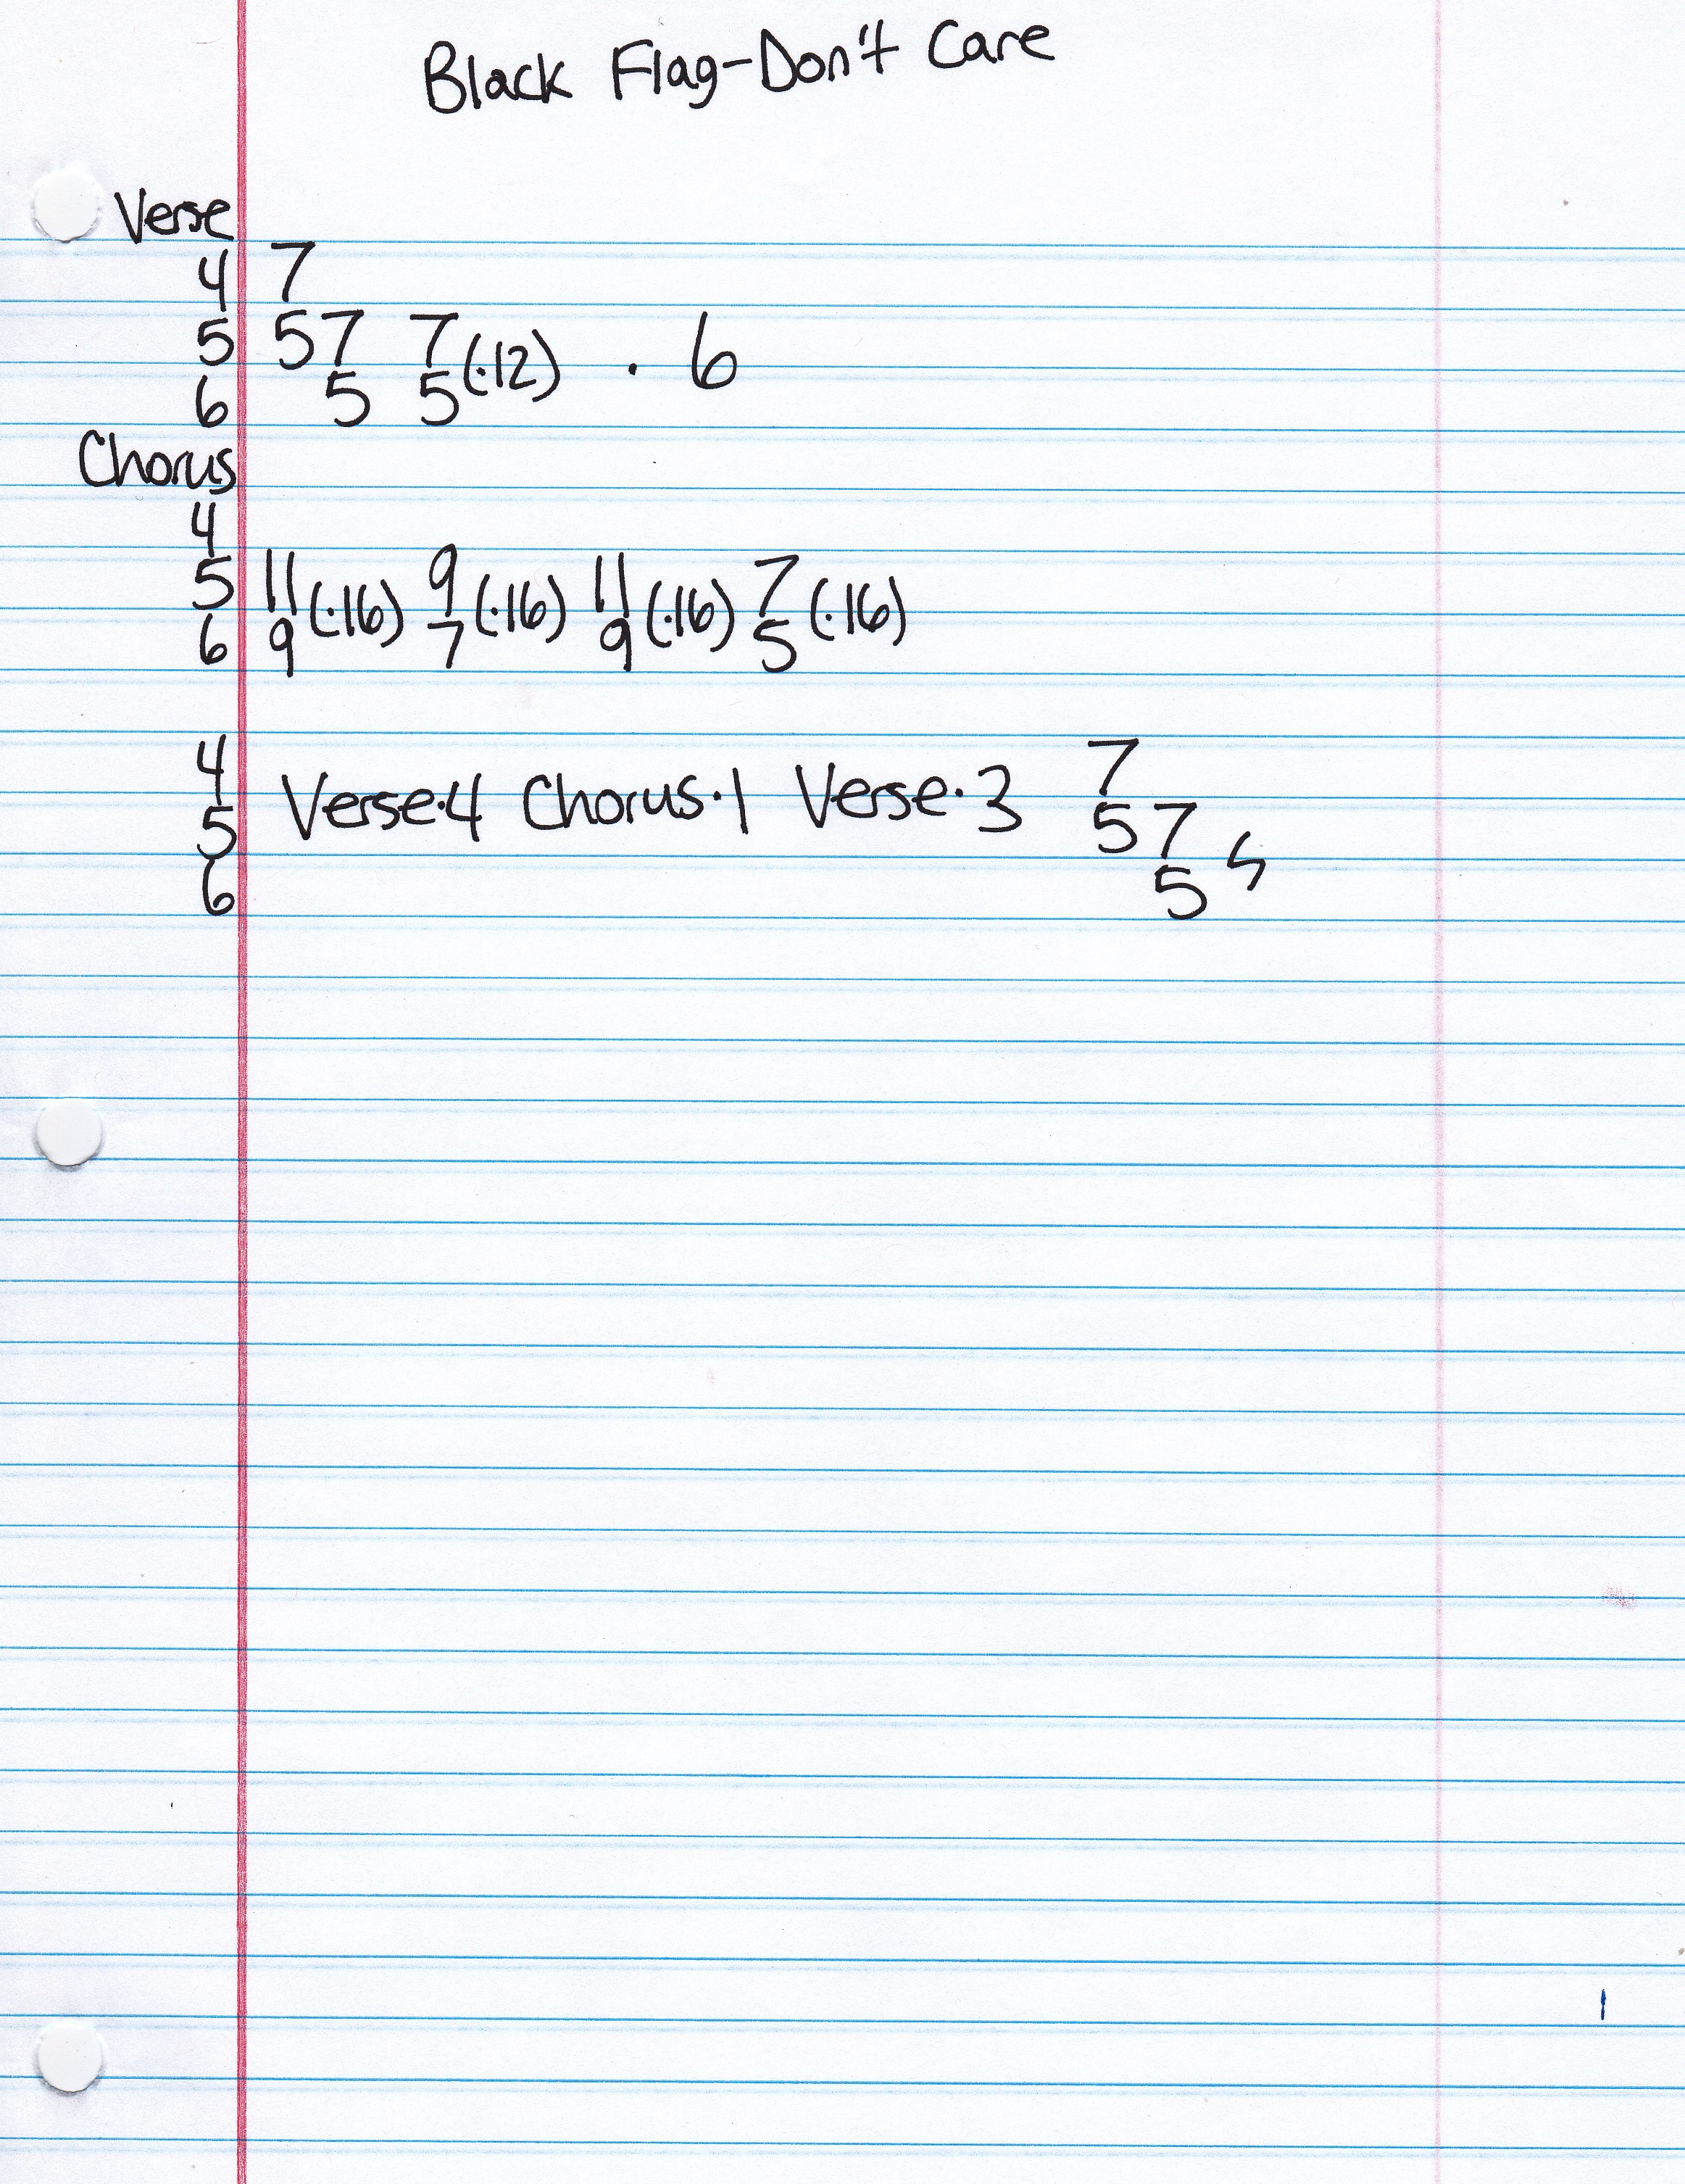 Black Flag-Don't Care
Verse
4 7
5 57 7(·12) · 6
6 5 5
Chorus
4
5 11(·16) 9(·16) 11(·16) 7(·16)
6 9 7 9 5
4 7
5 Verse·4 Chorus·1 Verse·3 57
6 5